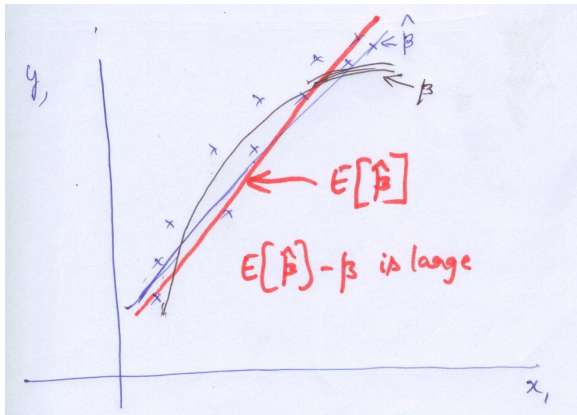 β̂
y₁
β
E[β̂]
E[β̂] - β is large
x₁